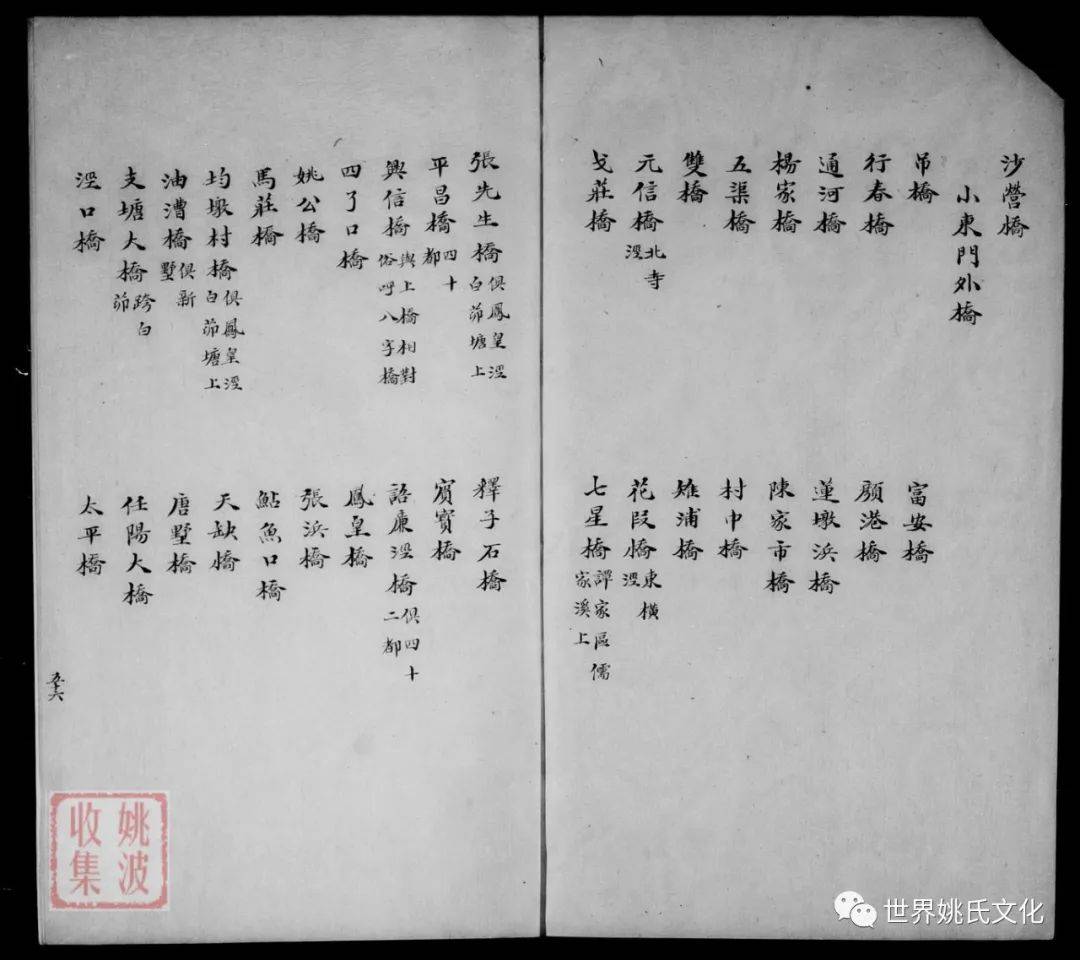 沙營橋
小東門外橋
吊橋 富安橋
行春橋 顧港橋
通河橋 蓮墩浜橋
楊家橋 陳家市橋
五渠橋 村中橋
雙橋 雉浦橋
元信橋 北寺涇 花段橋 東橫涇
戈莊橋 七星橋 譚家區儒家溪上
張先生橋 俱鳳皇涇白茆塘上 釋子石橋
平昌橋 四十都 賔寳橋
興信橋 與上橋相對俗呼八字橋 諮廉涇橋 俱四十二都
四了口橋 鳳皇橋
姚公橋 張浜橋
馬莊橋 鮎魚口橋
均墩村橋 俱鳳皇涇白茆塘上 天缺橋
油漕橋 俱新墅 唐墅橋
支塘大橋 跨白茆 任陽大橋
涇口橋 太平橋
五十六
姚波
收集
世界姚氏文化